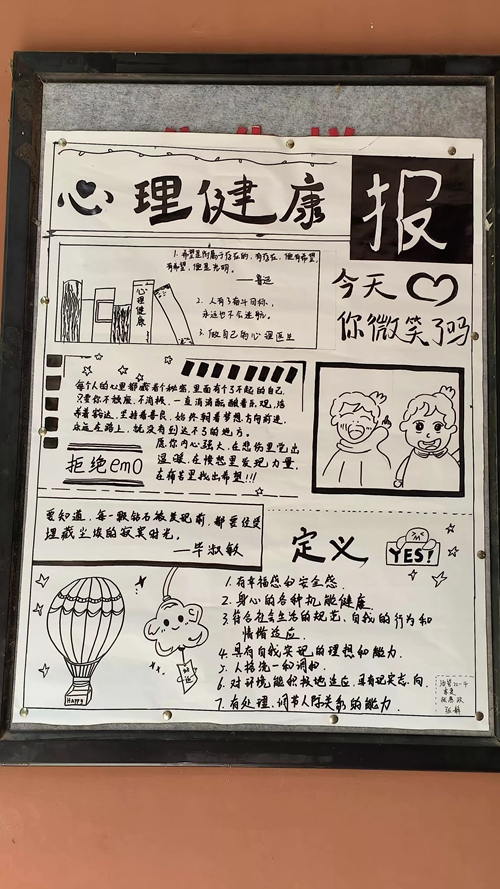 心理健康报
1. 希望是附属于存在的,有存在,便有希望,
有希望,便是光明。
——鲁迅
2. 人有了奋斗目标,
永远也不会迷航。
3. 做自己的心理医生
心理健康
今天
你微笑了吗
每个人的心里都藏着个秘密,里面有个了不起的自己,
只要你不放弃,不消极,一直
永远在路上,就没有到达不了的地方。
愿你内心强大,在悲伤里觉出
温暖,在愤怒里发现力量,
在痛苦里找出希望!!!
拒绝emo
要知道,每一颗钻石被发现前,都要经受
埋藏尘埃的寂寞时光。
——毕淑敏
定义
YES!
1. 有幸福感和安全感.
2. 身心的各种机能健康
3. 符合社会生活的规范,自我的行为和
情绪适应.
4. 具有自我实现的理想和能力.
5. 人格统一和调和.
6. 对环境能积极地适应,具有现实志向.
7. 有处理、调节人际关系的能力.
HAPPY